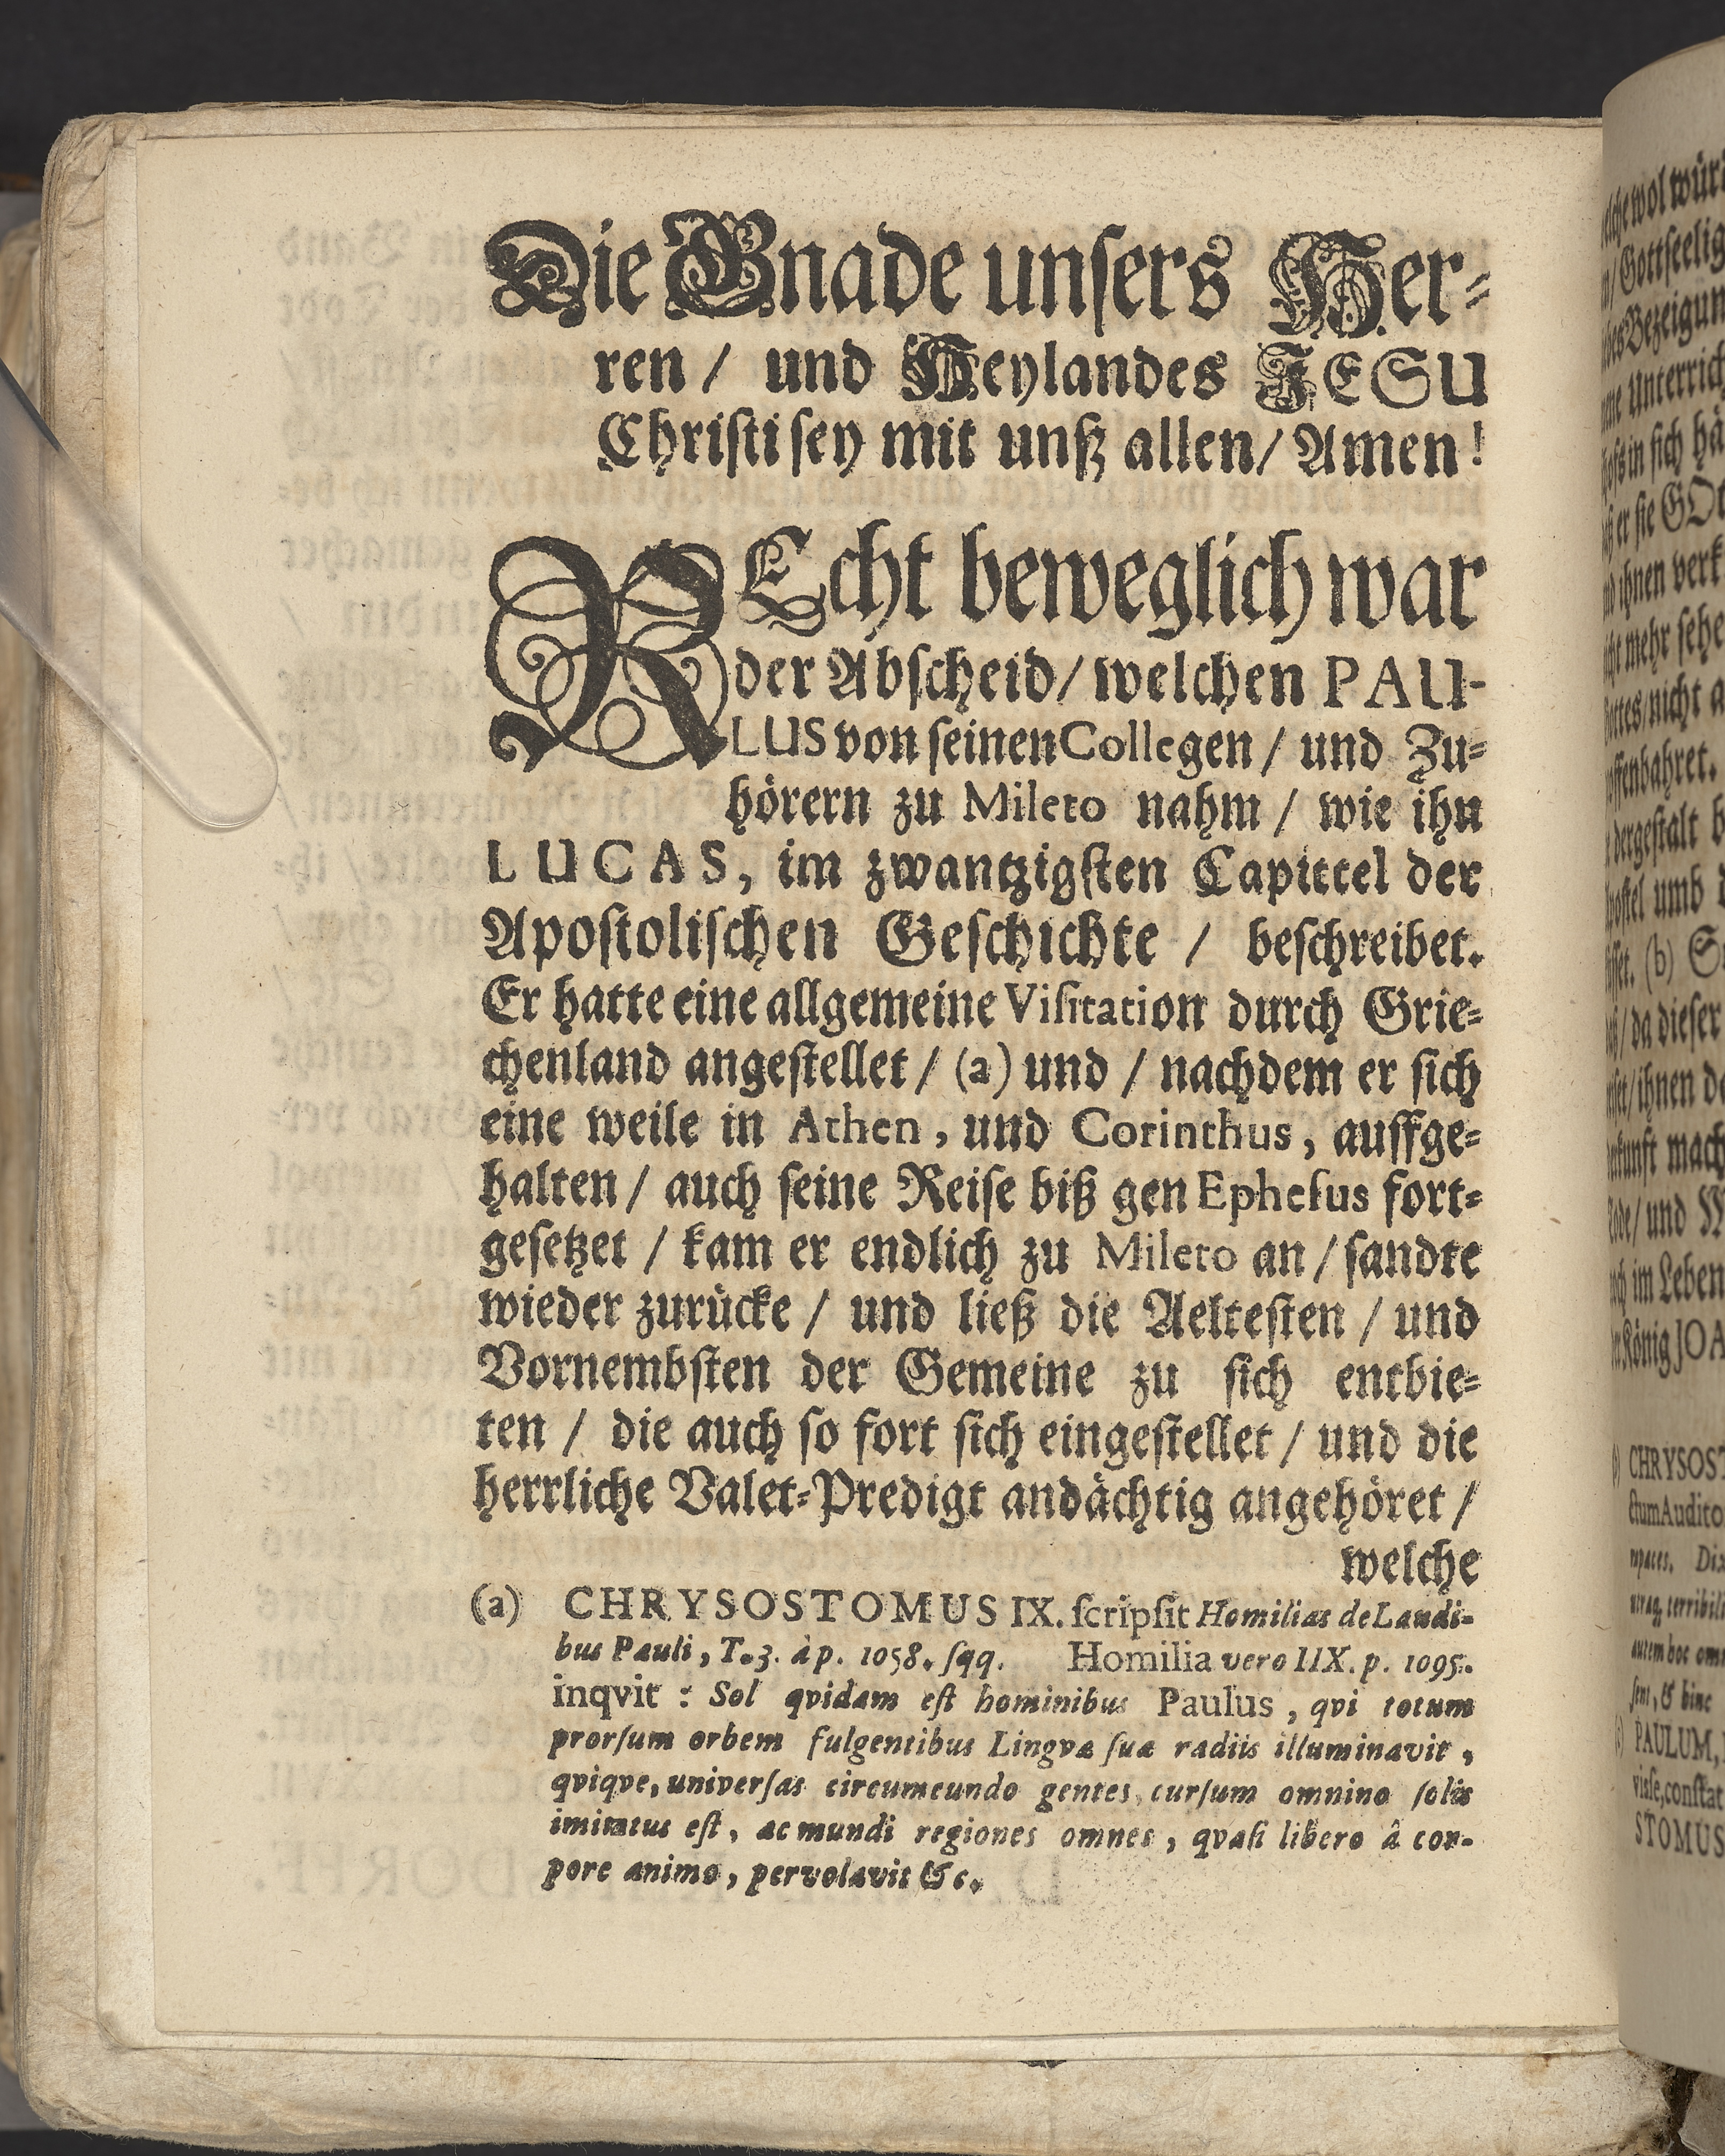 Die Gnade unsers Her⸗
ren / und Heylandes JESU
Christi sey mit unß allen / Amen!
REcht beweglich war
der Abscheid / welchen PAU-
LUS von seinen Collegen / und Zu⸗
hörern zu Mileto nahm / wie ihn
LUCAS, im zwantzigsten Capittel der
Apostolischen Geschichte / beschreibet.
Er hatte eine allgemeine Visitation durch Grie⸗
chenland angestellet / (a) und / nachdem er sich
eine weile in Athen, und Corinthus, auffge⸗
halten / auch seine Reise biß gen Ephesus fort⸗
gesetzet / kam er endlich zu Mileto an / sandte
wieder zurücke / und ließ die Aeltesten / und
Vornembsten der Gemeine zu sich entbie⸗
ten / die auch so fort sich eingestellet / und die
herrliche Valet⸗Predigt andächtig angehöret /
welche
(a) CHRYSOSTOMUS IX. scripsit Homilias de Laudi-
bus Pauli, T. 3. à p. 1058. sqq. Homilia vero IIX. p. 1095.
inqvit : Sol qvidam est hominibus Paulus, qvi totum
prorsum orbem fulgentibus Lingvæ suæ radiis illuminavit,
qviqve, universas circumeundo gentes, cursum omnino solis
imitatus est, ac mundi regiones omnes, qvasi libero â cor-
pore animo, pervolavit &c.
wol
Gottseelig
in sich
er sie
ihnen
mehr sehe
nicht
dergestalt
umb
(b)
da dieser
ihnen
mach
und
im Leben
König JOA
CHRYSOST
PAULUM,
STOMUS